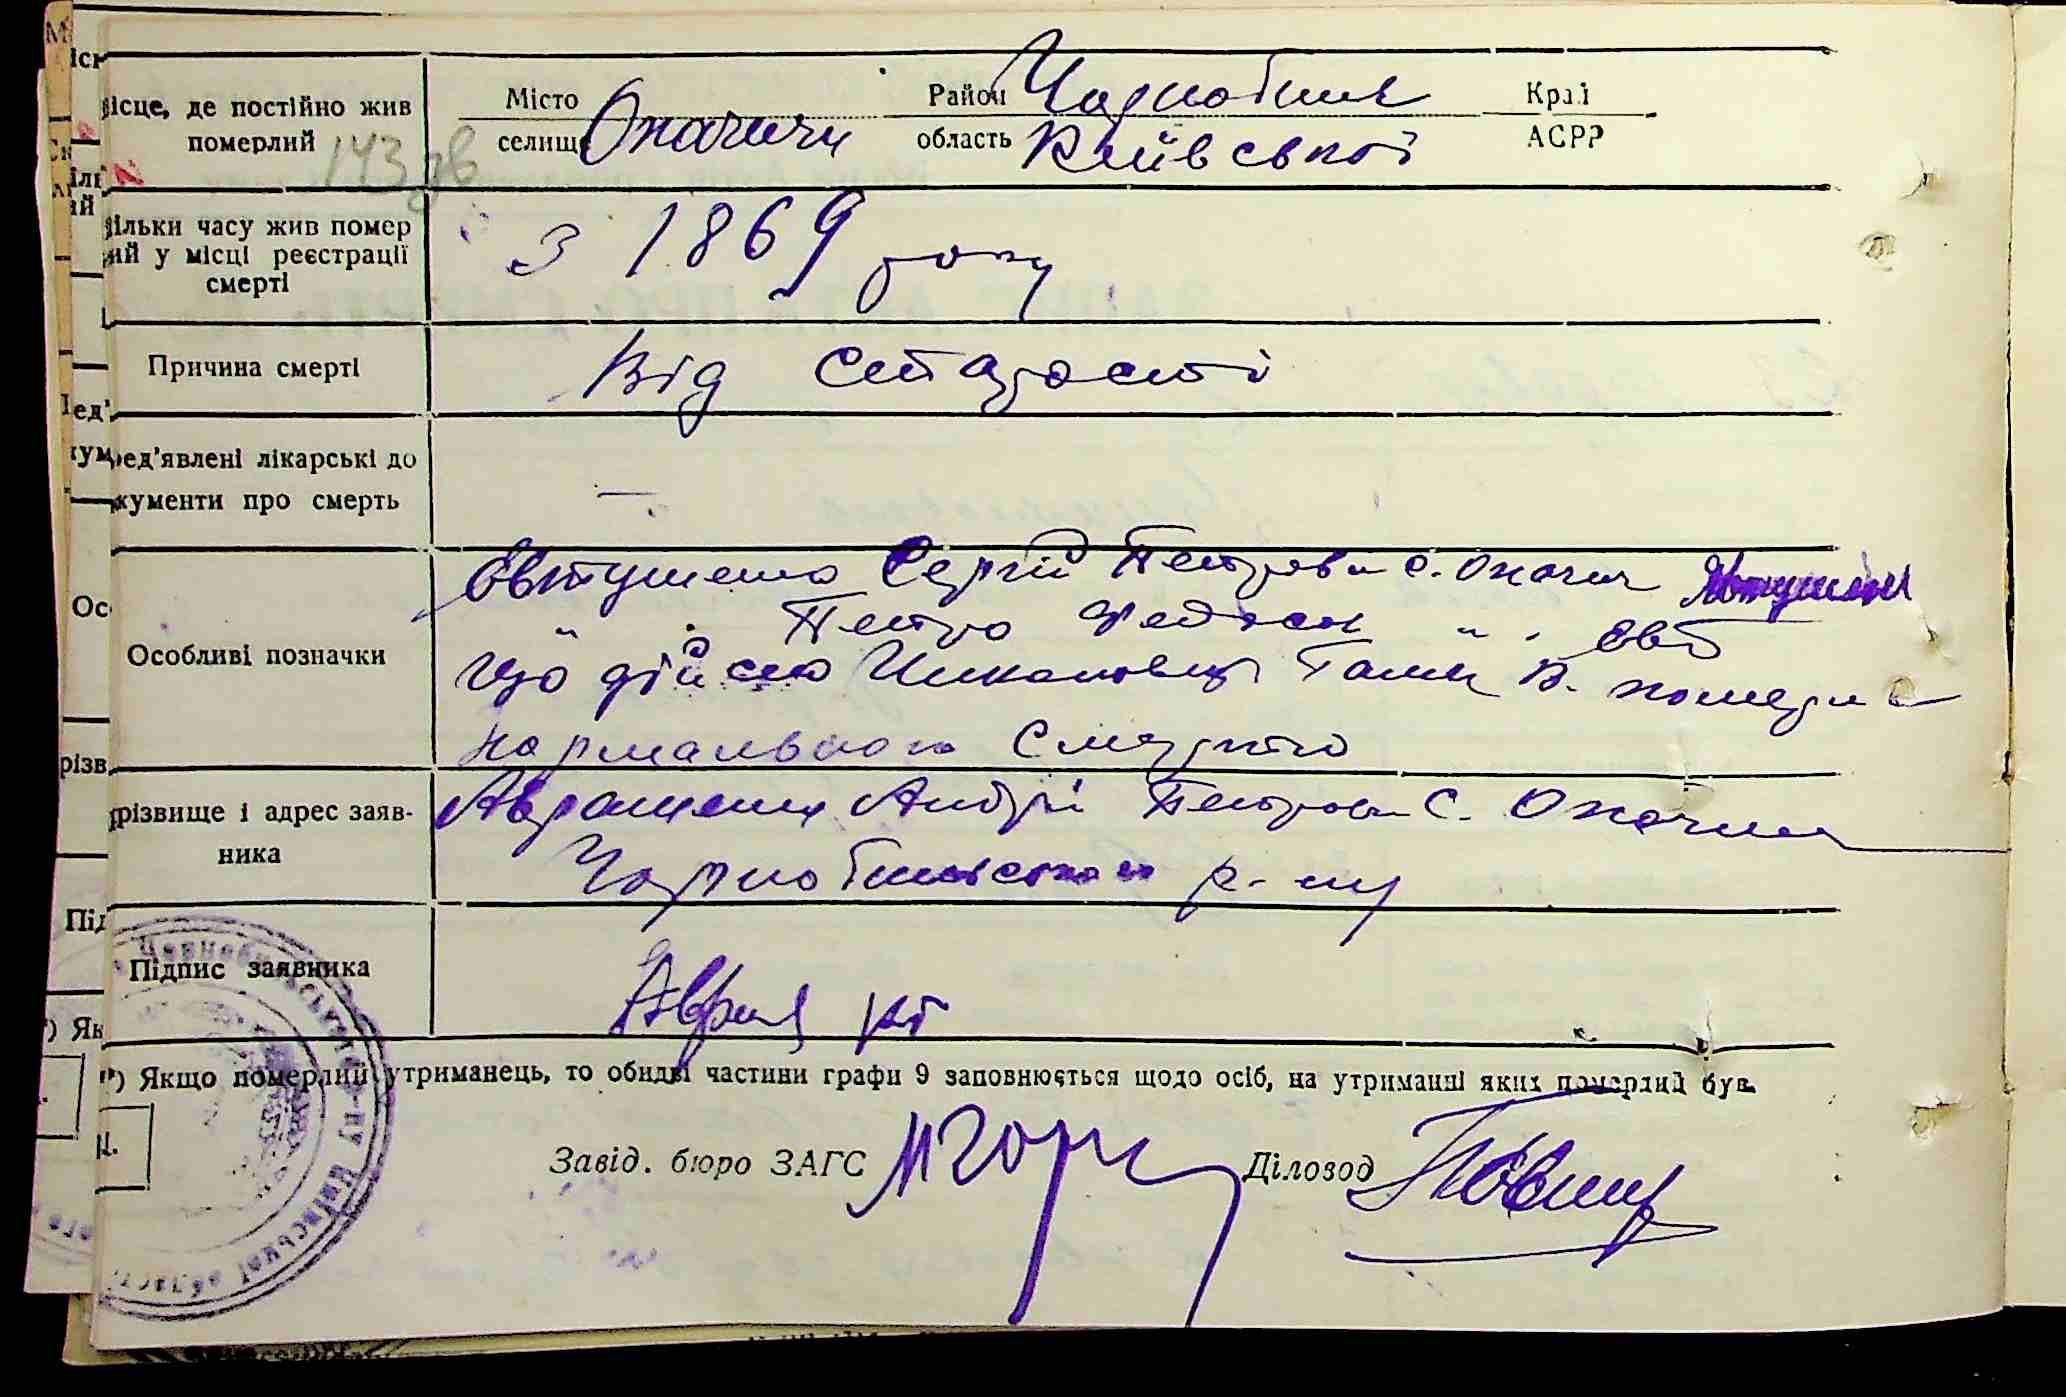 ісце, де постійно жив
померлий
143 зв
Місто
селищ
Опачичи
Район
область
Чорнобиль
Київської
Край
АСРР
ільки часу жив помер
ий у місці реєстрації
смерті
З 1869 року
Причина смерті
Від старості
ед'явлені лікарські до
кументи про смерть
—
Особливі позначки
Євтушенко Сергій Петрович с. Опачичі
" Петро Федос " Євт
що дійсно Ганна В. померла
нормальною смертю
різвище і адрес заяв-
ника
Авраменко Андрій Петрович с. Опачичі
Чорнобильського р-ну
Підпис заявника
) Якщо померлий утриманець, то обидві частини графи 9 заповнюється щодо осіб, на утриманні яких померлий був.
Завід. бюро ЗАГС
Діловод